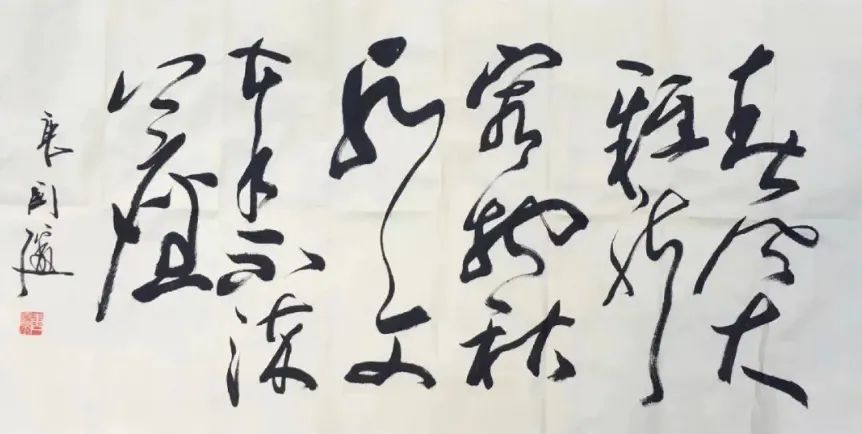 春風大
雅能
容物秋
水文
章不染
塵